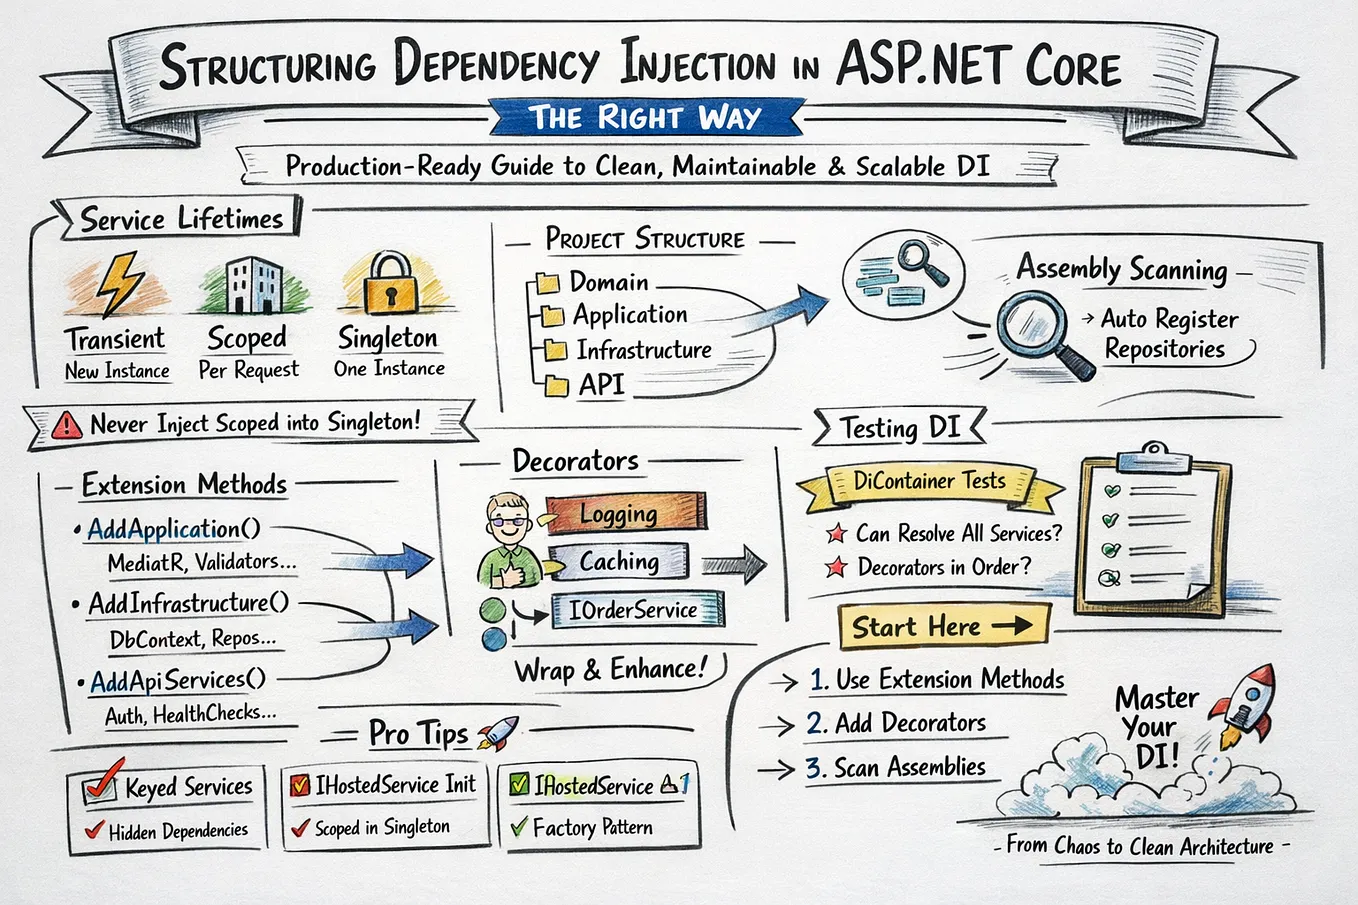 STRUCTURING DEPENDENCY INJECTION IN ASP.NET CORE
THE RIGHT WAY
Production-Ready Guide to Clean, Maintainable & Scalable DI
Service Lifetimes
Transient
New Instance
Scoped
Per Request
Singleton
One Instance
Never Inject Scoped into Singleton!
PROJECT STRUCTURE
Domain
Application
Infrastructure
API
Assembly Scanning
→ Auto Register
Repositories
Extension Methods
• AddApplication()
MediatR, Validators...
• AddInfrastructure()
DbContext, Repos...
• AddApiServices()
Auth, HealthChecks...
Decorators
Logging
Caching
IOrderService
Wrap & Enhance!
Testing DI
DiContainer Tests
Can Resolve All Services?
Decorators in Order?
Start Here →
→ 1. Use Extension Methods
→ 2. Add Decorators
→ 3. Scan Assemblies
Master
Your
DI!
- From Chaos to Clean Architecture -
Pro Tips
Keyed Services
Hidden Dependencies
IHostedService Init
Scoped in Singleton
Factory Pattern